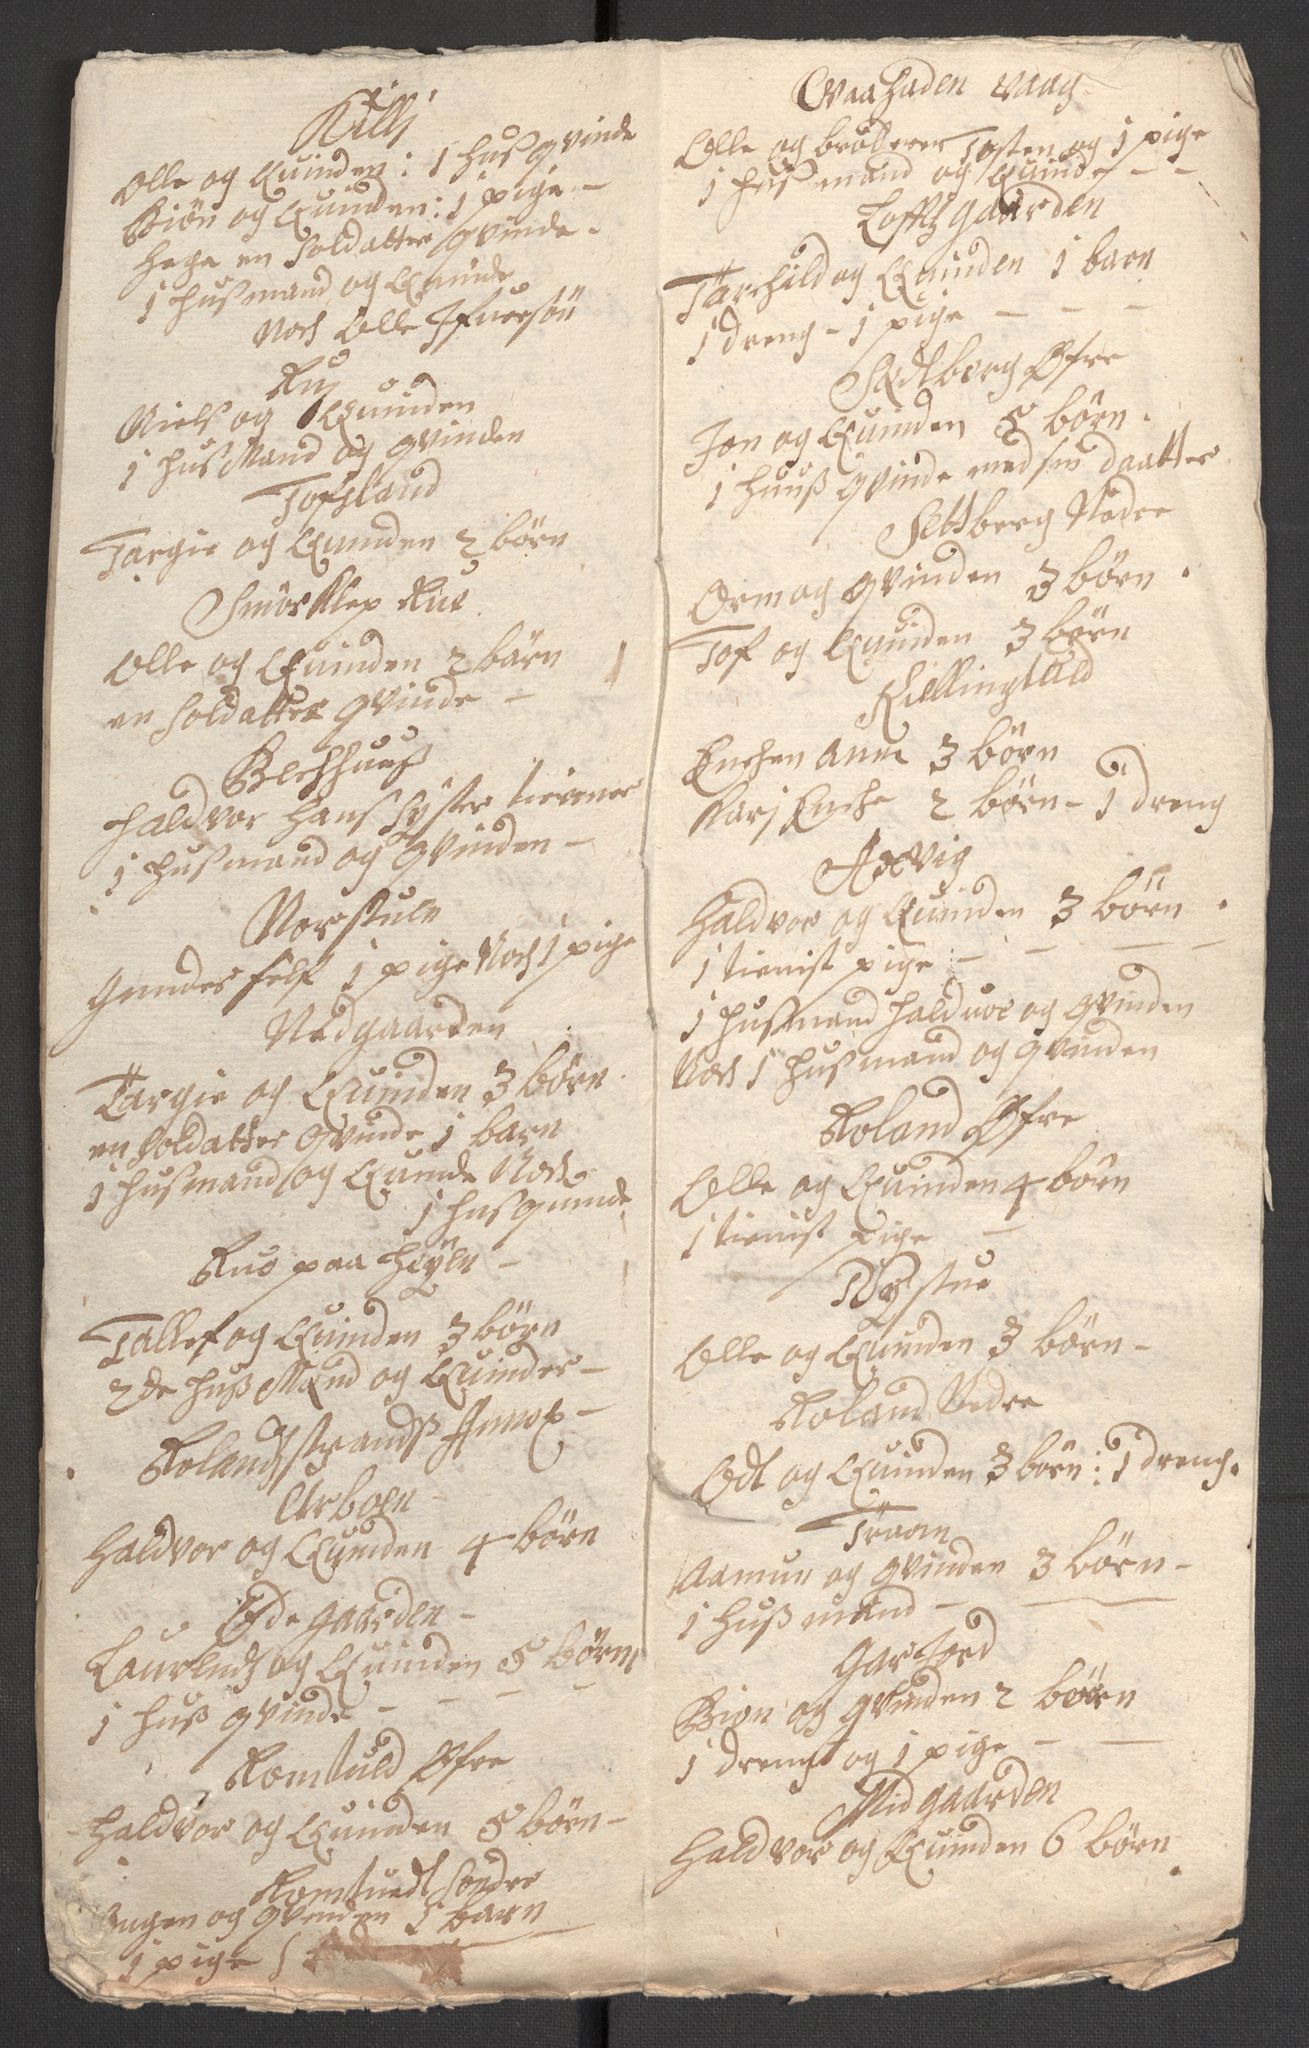 Killj
Olle og Quinden: 1 husqvinde
Biön og Quinden: 1 pige –
hege en Soldatter qvinde.
1 husmand og Quinde
Noch Olle Ifuersön
Ruj
Niels og Quinden
1 hus Mand og qvinden
Tofsland
Targie og Quinden 2 börn
Smörklep Rue
Olle og Quinden 2 bärn
en Soldatter qvinde –
haldvor hans Syster tienner
1 husmand og qvinden –
Norstuln
Gunder self 1 pige Noch 1 pige
Nedgaarden
Targie og Quinden 3 börn.
en Soldatter qvinde 1 barn
1 husmand og Quinde Noch
1 husqvinde
Rue paa heÿen –
Tallef og Quinden 3 börn
2de huß Mænd og Quinder –
Rolandstrandß Annex –
Urboen –
Haldvor og Quinden 4 börn
Ødegaarden –
Laurendtz og Quinden 5 börn
1 huß qvinde – – – –
Romtuld Øfre
Haldvor og Quinden 5 börn –
Romtuedt Søndre
og qvinden 1 barn
1 pige
Vaahaden Vaag
Olle og broderen Tosten og 1 pige
1 husmand og Quinde – –
Loftsgaarden
Tarchild og Quinden 1 barn
1 dreng – 1 pige – – –
Sedtberg Øfre
Jon og Quinden 5 börn.
1 huuß qvinde med sin daatter
Settberg Nedre
Orm og qvinden 3 börn.
Tof og Quinden 3 börn
Enchen Anne 3 börn
Karj Enche 2 börn – 1 dreng
Axvig
Haldvor og Quinden 3 börn.
1 tienist pige – – – –
1 husmand haldvor og qvinden
Noch 1 husmand og qvinden
Roland Øfre
Olle og Quinden 4 börn
1 tienist pige –
Nystue
Olle og Quinden 3 börn –
Roland Nedre
Odt og Quinden 3 börn: 1 dreng.
Traaen
Aamun og qvinden 3 börn –
1 huß mand –
Garsjord
Biön og qvinden 2 börn
1 dreng og 1 pige – –
Midgaarden
Haldvor og Quinden 6 börn